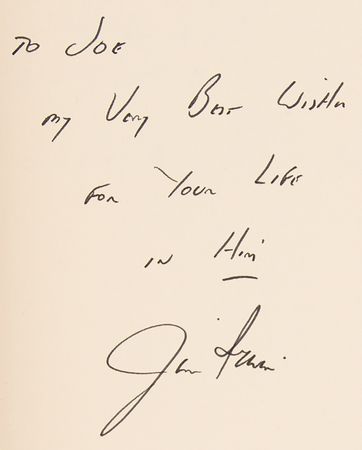 To Joe
my Very Best Wishes
For Your Life
in Him
Jim Irwin